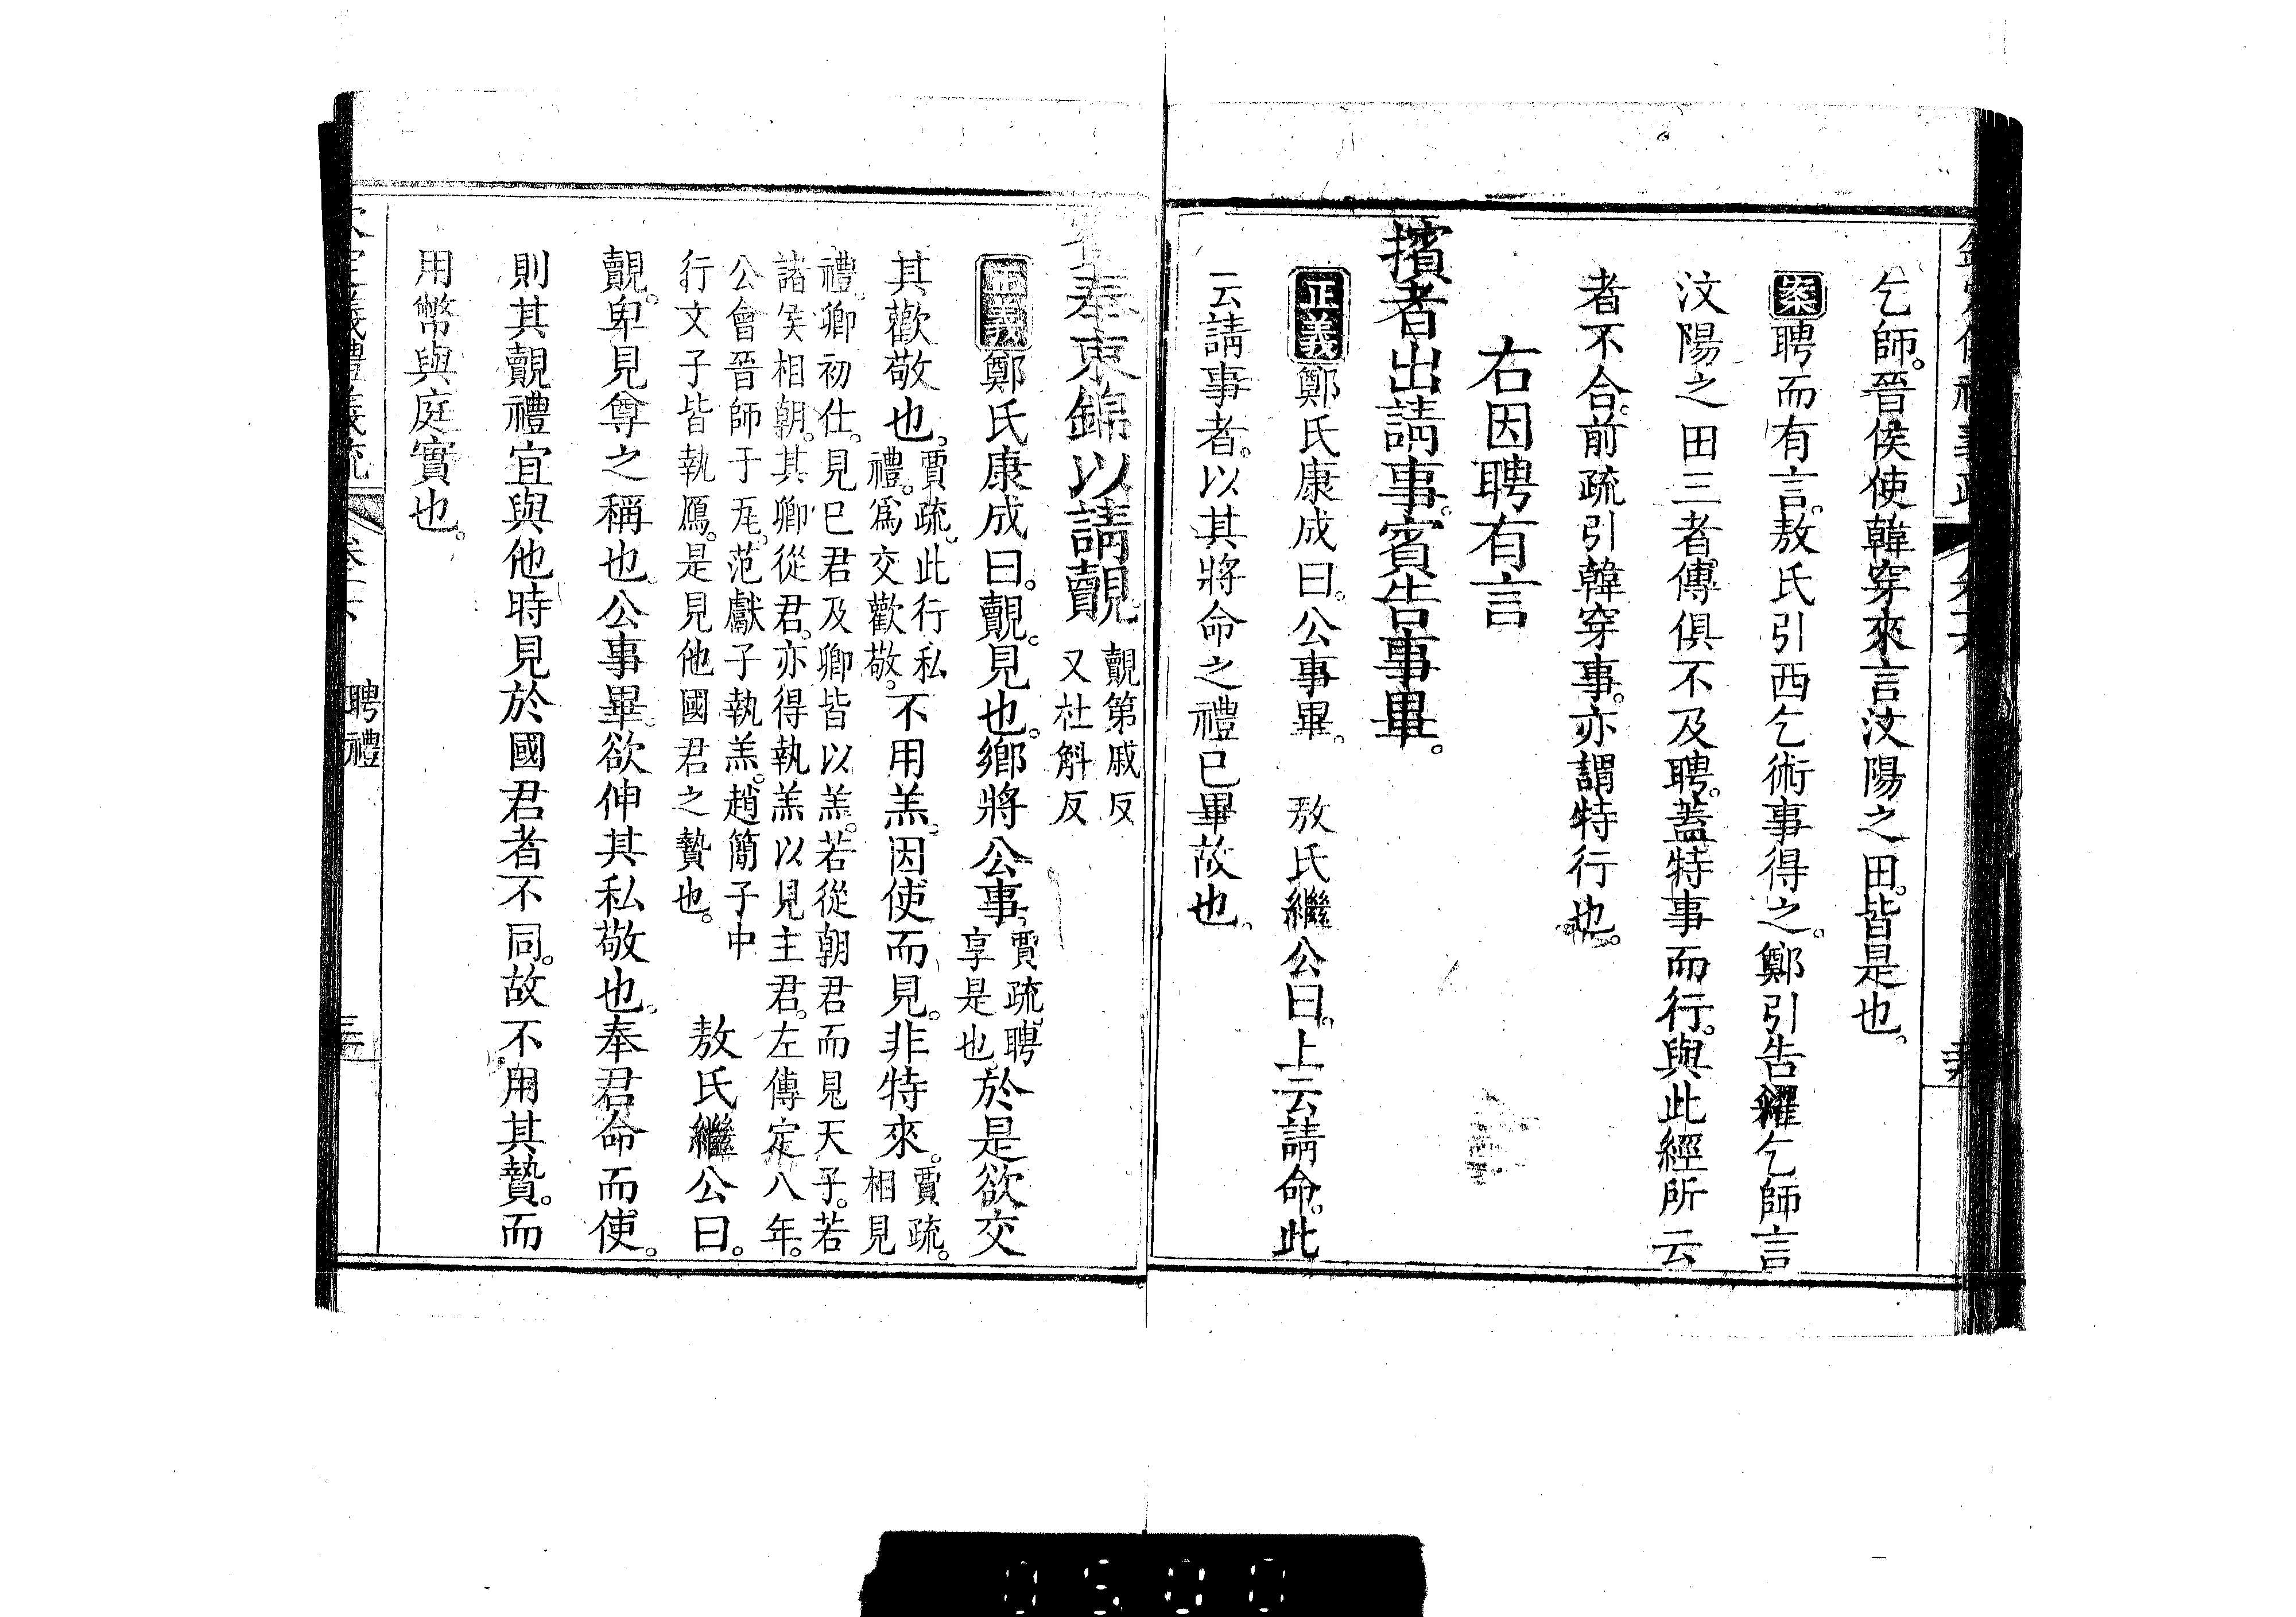 乞師。晉侯使韓穿來言汶陽之田。皆是也。
案聘而有言。敖氏引西乞術事得之。鄭引告糴乞師言
汶陽之田三者。傳俱不及聘。蓋特事而行。與此經所云
者不合。前疏引韓穿事。亦謂特行也。
右因聘有言
擯者出請事。賓告事畢。
正義鄭氏康成曰。公事畢。 敖氏繼公曰。上云請命。此
云請事者。以其將命之禮已畢故也。
賓奉束錦以請覿。
覿第戚反
又杜斛反
正義鄭氏康成曰。覿。見也。鄉將公事。
賈疏。聘
享是也。
於是欲交
其歡敬也。
賈疏。此行私
禮。爲交歡敬。
不用羔。因使而見。非特來。
賈疏。
相見
禮。卿初仕。見已君及卿皆以羔。若從朝君而見天子。若
諸侯相朝。其卿從君。亦得執羔以見主君。左傳定八年。
公會晉師于瓦。范獻子執羔。趙簡子中
行文子皆執鴈。是見他國君之贄也。
敖氏繼公曰。
覿。卑見尊之稱也。公事畢。欲伸其私敬也。奉君命而使。
則其覿禮宜與他時見於國君者不同。故不用其贄。而
用幣與庭實也。
聘禮
0500